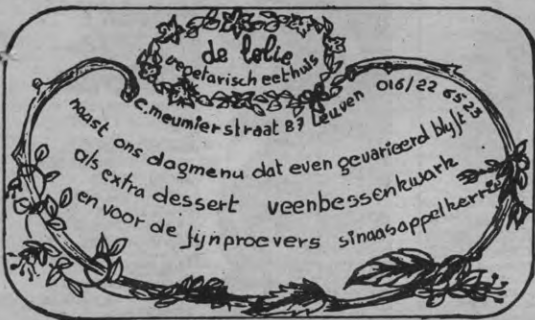 de lolie
vegetarisch eethuis
c.meunierstraat 87 Leuven 016/22 65 23
naast ons dagmenu dat even gevarieerd blijft
als extra dessert veenbessenkwark
en voor de fijnproevers sinaasappelkerrie